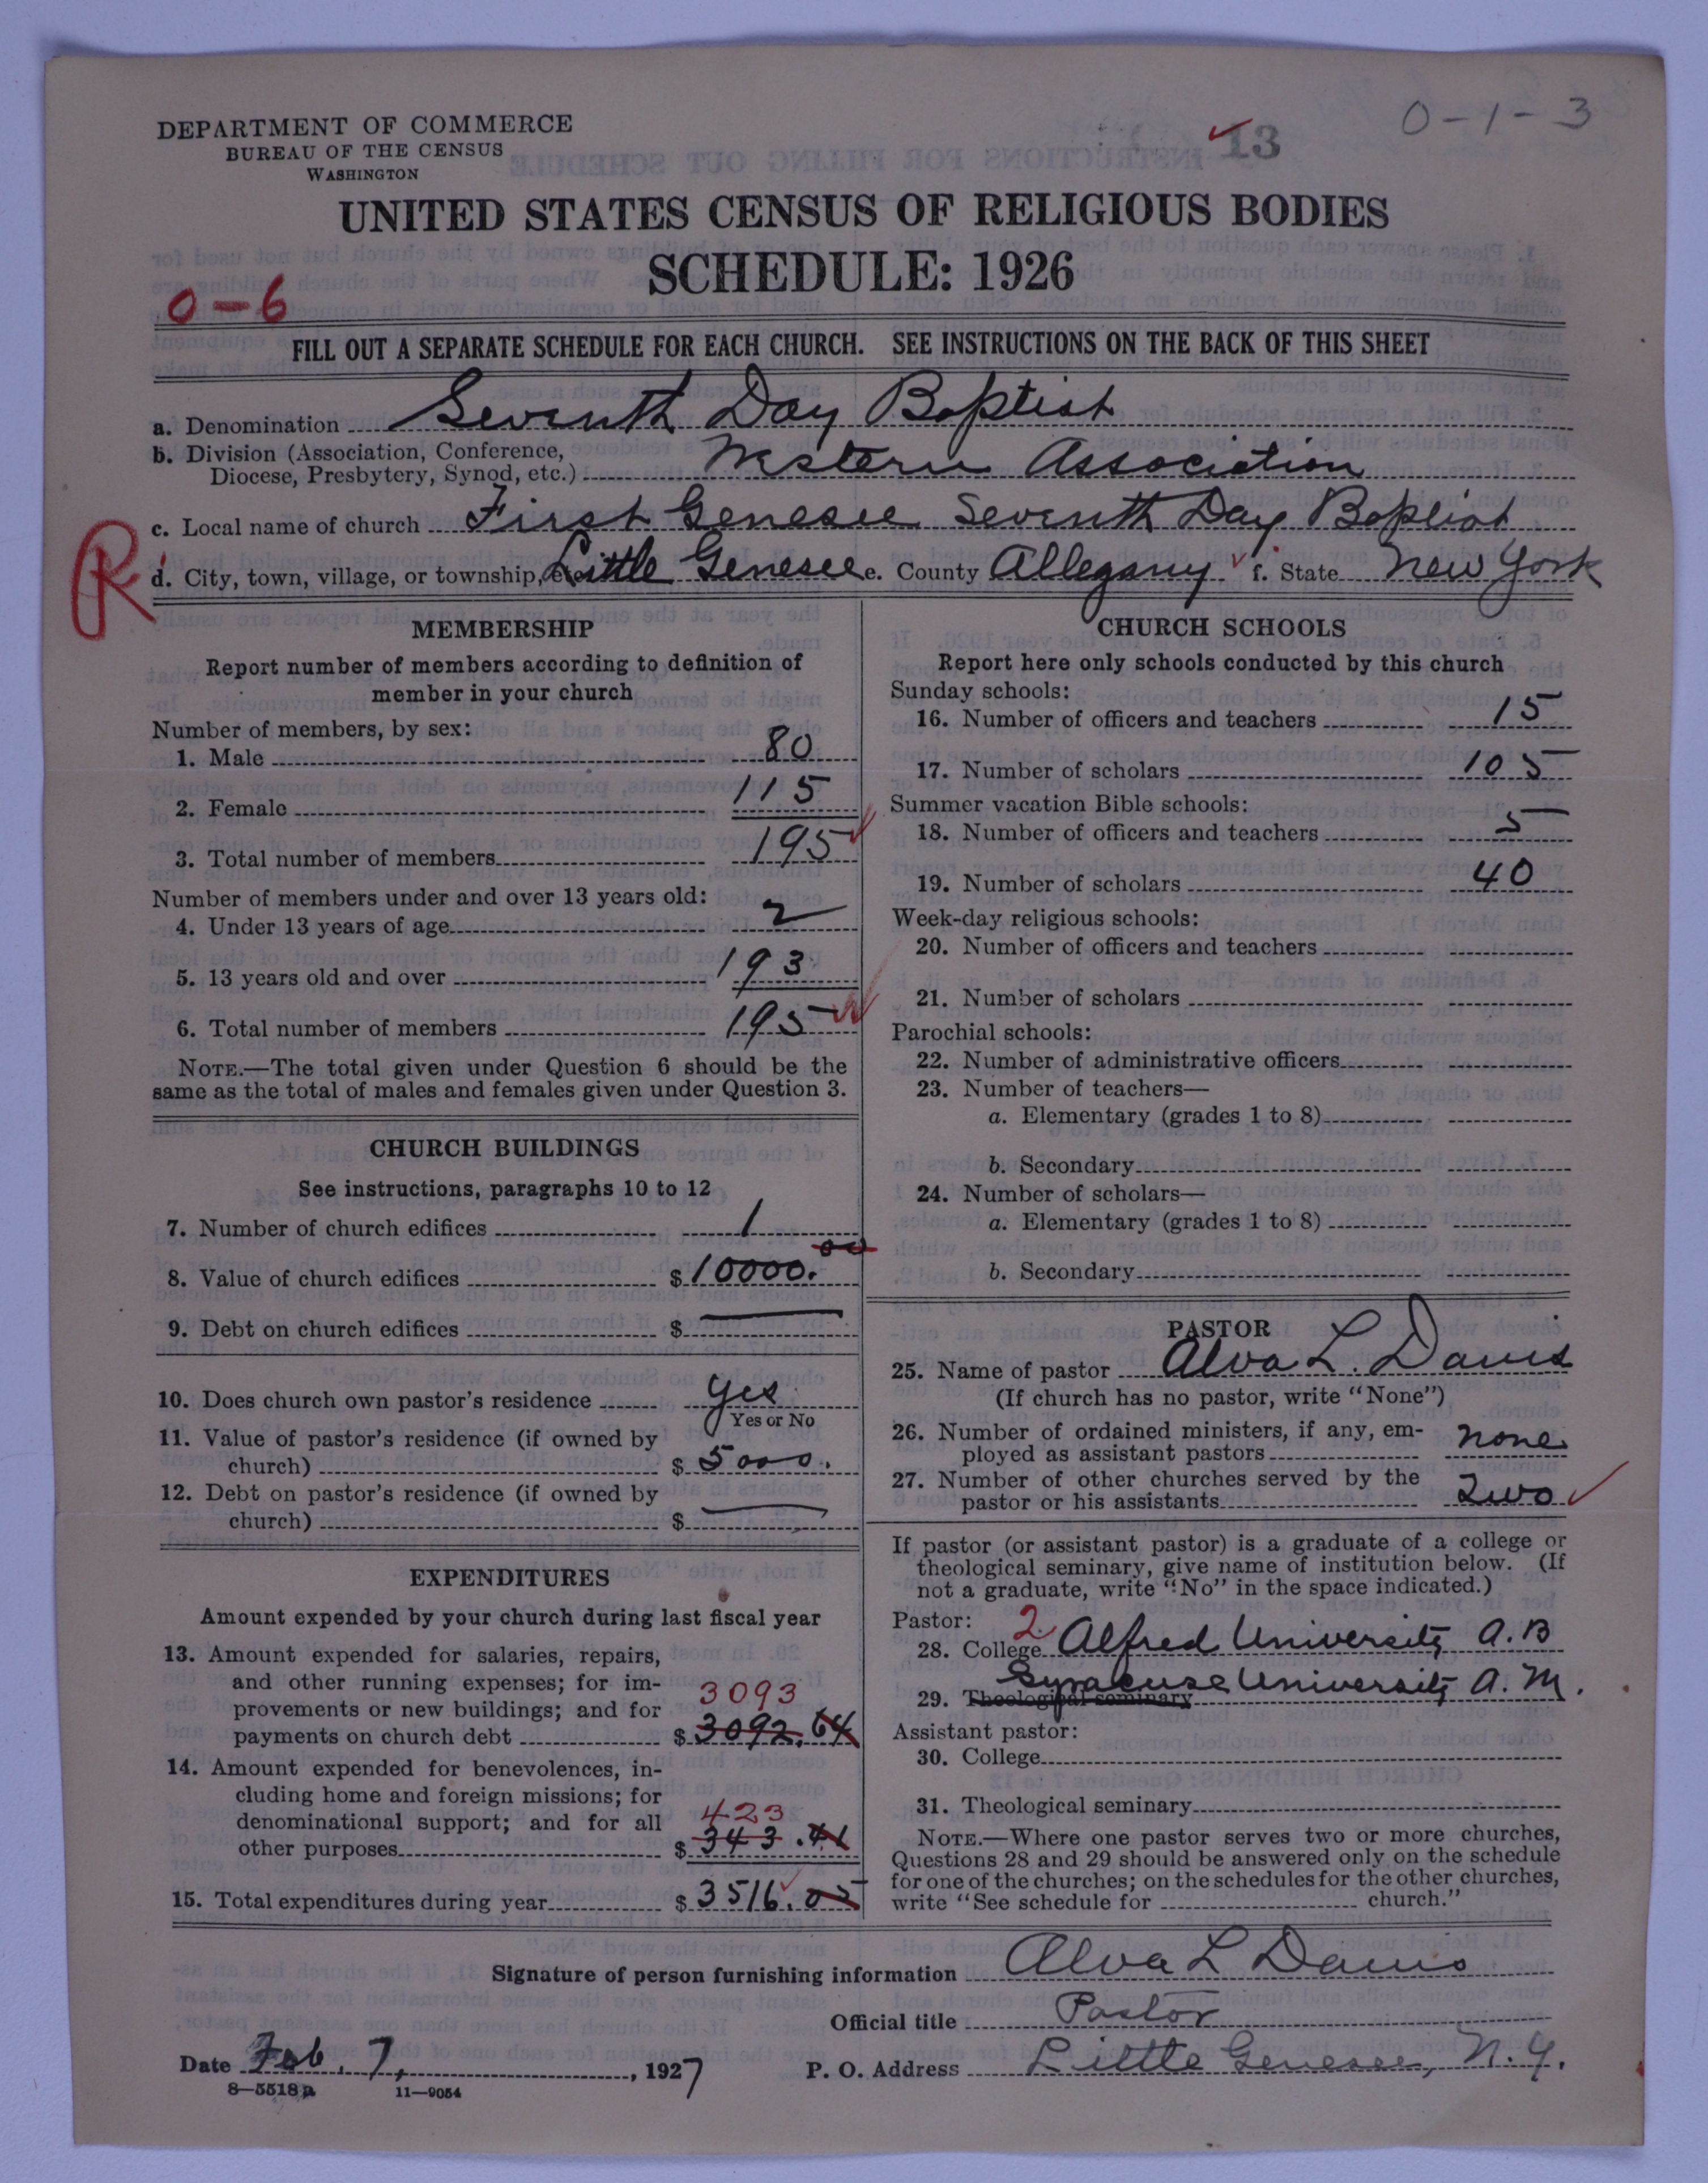 DEPARTMENT OF COMMERCE
BUREAU OF THE CENSUS
WASHINGTON
13
0-1-3
UNITED STATES CENSUS OF RELIGIOUS BODIES
SCHEDULE: 1926
0-6
FILL OUT A SEPARATE SCHEDULE FOR EACH CHURCH. SEE INSTRUCTIONS ON THE BACK OF THIS SHEET
a. Denomination Seventh Day Baptist
b. Division (Association, Conference, Diocese, Presbytery, Synod, etc.) Western Association
c. Local name of church First Genesee Seventh Day Baptist
R
d. City, town, village, or township, etc. Little Genesee e. County Allegany f. State New York
MEMBERSHIP
Report number of members according to definition of
member in your church
Number of members, by sex:
1. Male 80
2. Female 115
3. Total number of members 195
Number of members under and over 13 years old:
4. Under 13 years of age 2
5. 13 years old and over 193
6. Total number of members 195
NOTE.—The total given under Question 6 should be the
same as the total of males and females given under Question 3.
CHURCH BUILDINGS
See instructions, paragraphs 10 to 12
7. Number of church edifices 1
8. Value of church edifices $10000.00
9. Debt on church edifices $ —
10. Does church own pastor's residence Yes
Yes or No
11. Value of pastor's residence (if owned by
church) $ 5000.
12. Debt on pastor's residence (if owned by
church) $ —
EXPENDITURES
Amount expended by your church during last fiscal year
13. Amount expended for salaries, repairs,
and other running expenses; for im-
provements or new buildings; and for 3093
payments on church debt $ 3092.64
14. Amount expended for benevolences, in-
cluding home and foreign missions; for
denominational support; and for all 423
other purposes $ 343.41
15. Total expenditures during year $ 3516.05
CHURCH SCHOOLS
Report here only schools conducted by this church
Sunday schools:
16. Number of officers and teachers 15
17. Number of scholars 105
Summer vacation Bible schools:
18. Number of officers and teachers 5
19. Number of scholars 40
Week-day religious schools:
20. Number of officers and teachers
21. Number of scholars
Parochial schools:
22. Number of administrative officers
23. Number of teachers—
a. Elementary (grades 1 to 8)
b. Secondary
24. Number of scholars—
a. Elementary (grades 1 to 8)
b. Secondary
PASTOR
25. Name of pastor Alva L. Davis
(If church has no pastor, write "None")
26. Number of ordained ministers, if any, em-
ployed as assistant pastors none
27. Number of other churches served by the
pastor or his assistants Two
If pastor (or assistant pastor) is a graduate of a college or
theological seminary, give name of institution below. (If
not a graduate, write "No" in the space indicated.)
Pastor: 2
28. College Alfred University A.B
29. Theological seminary Syracuse University A.M.
Assistant pastor:
30. College
31. Theological seminary
NOTE.—Where one pastor serves two or more churches,
Questions 28 and 29 should be answered only on the schedule
for one of the churches; on the schedules for the other churches,
write "See schedule for church."
Signature of person furnishing information Alva L Davis
Official title Pastor
Date Feb. 7, 1927 P. O. Address Little Genesee, N.Y.
8—5518a 11—9054